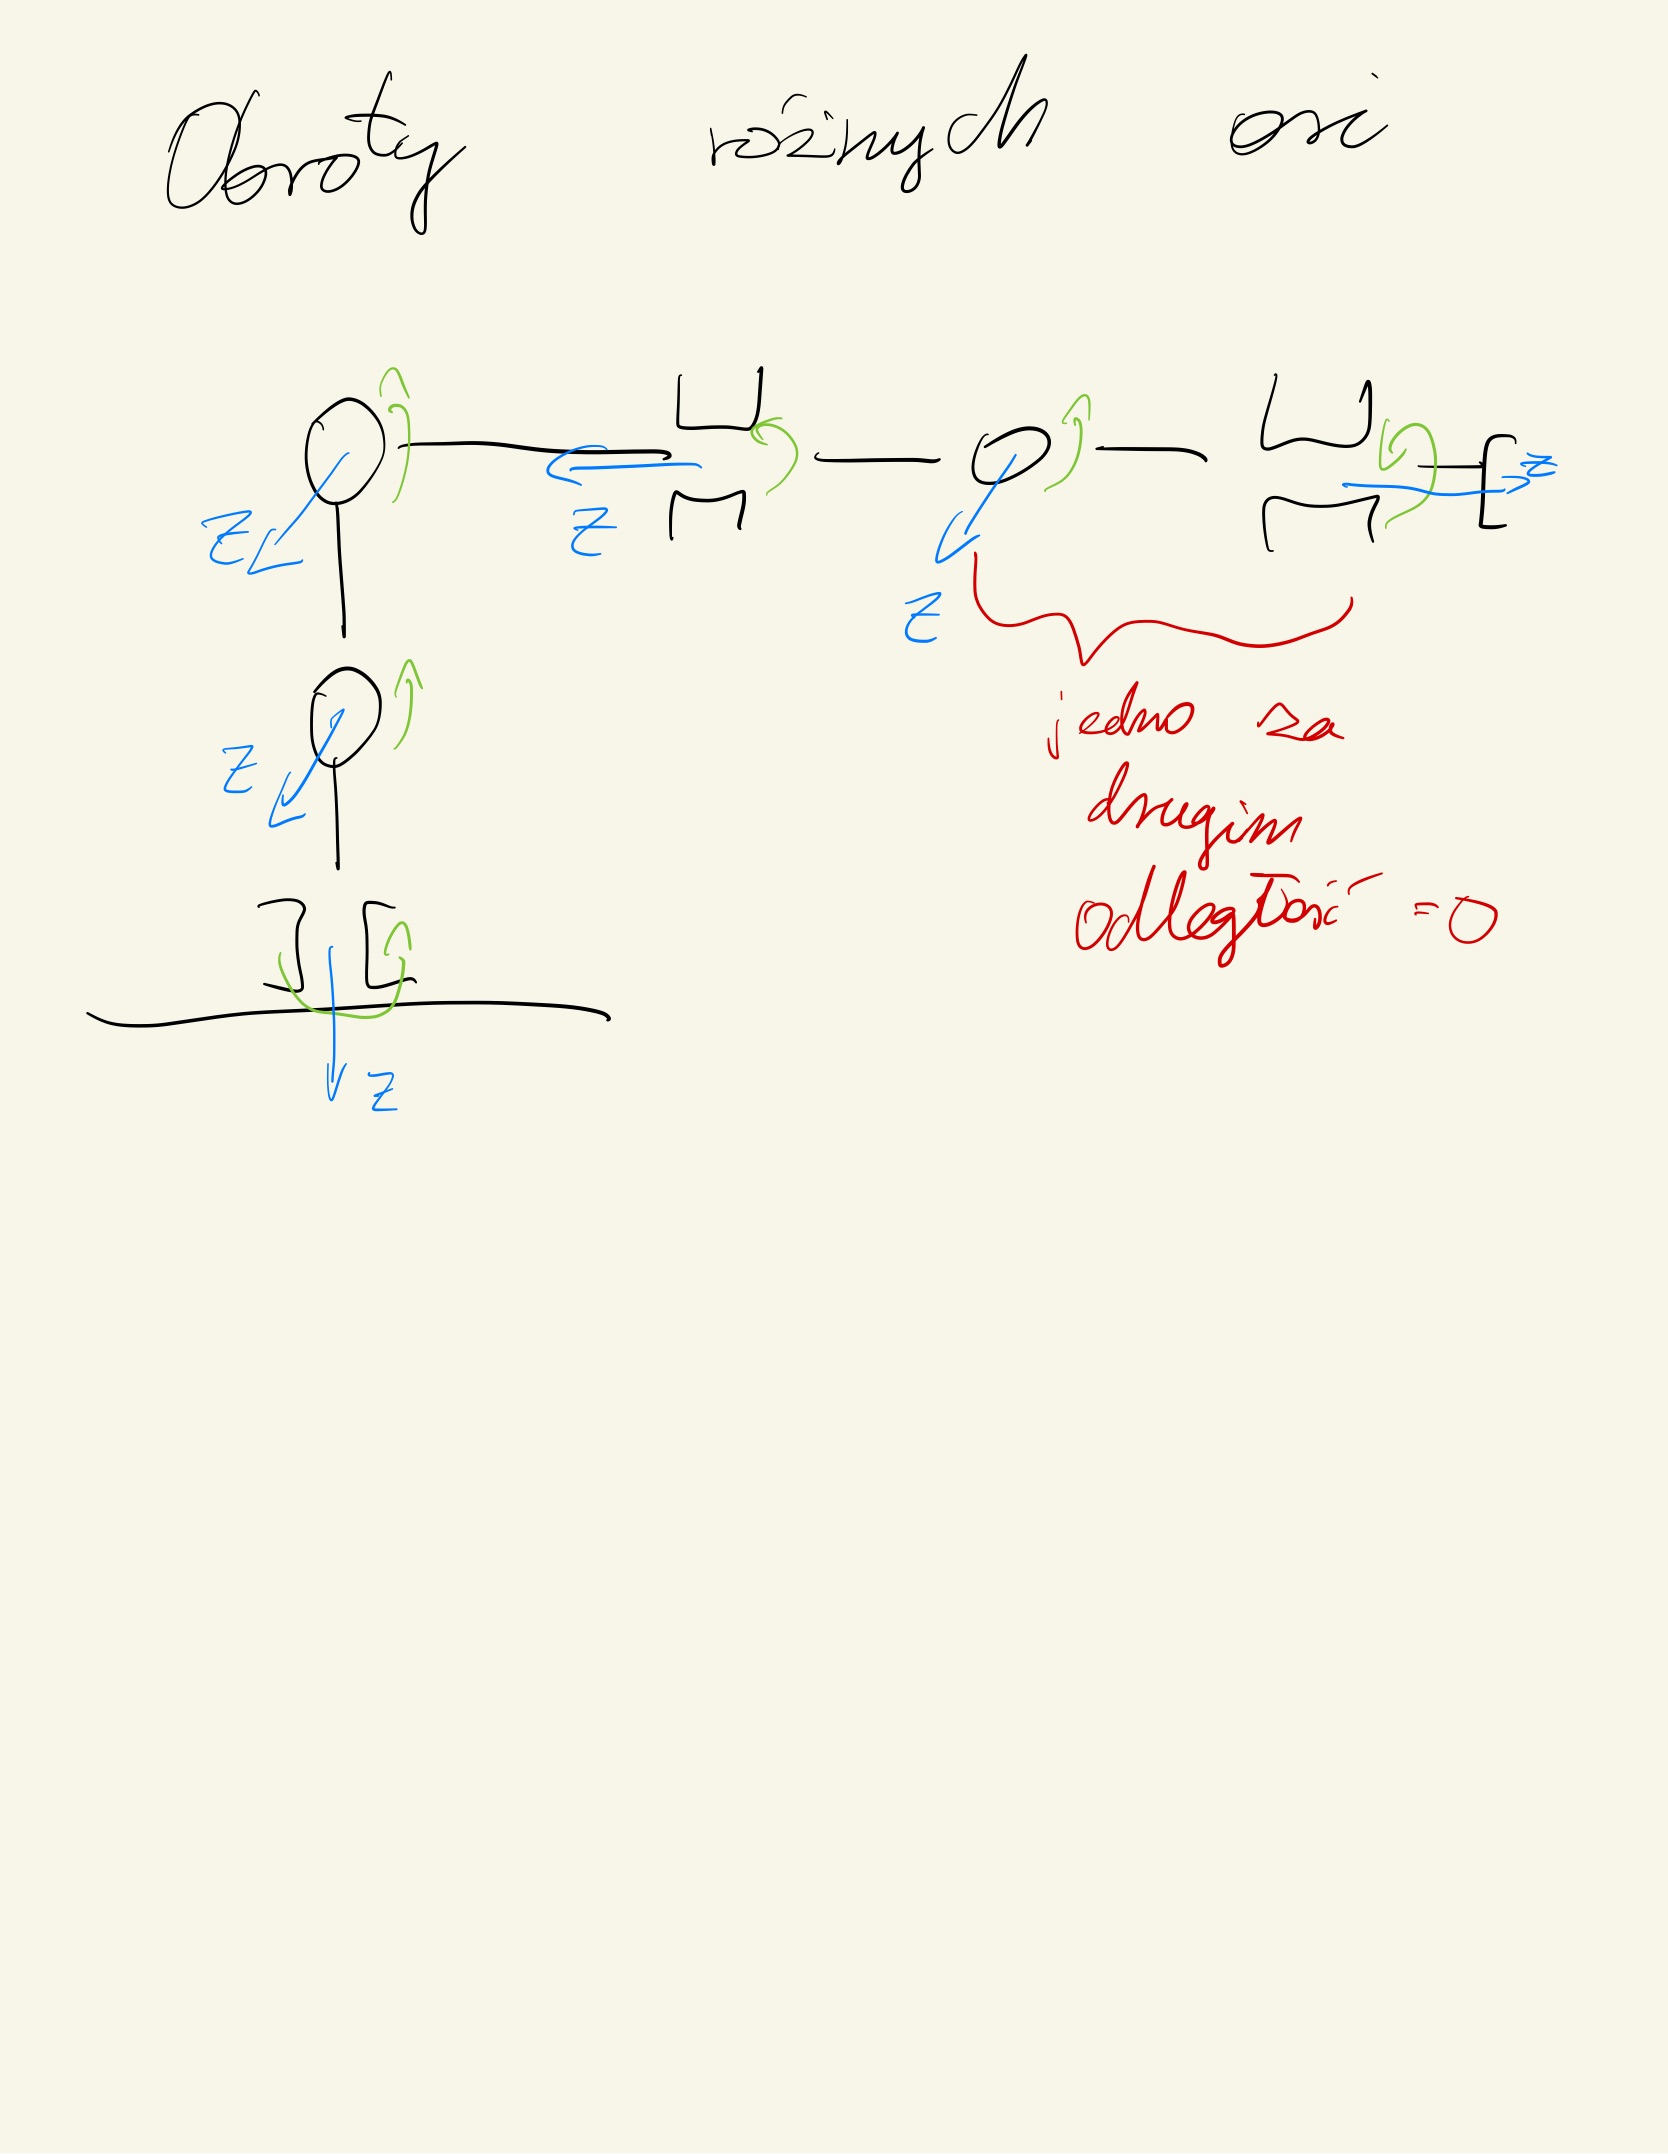 Obroty różnych osi
z
z
z
z
jedno za
z
drugim
odległość =0
z